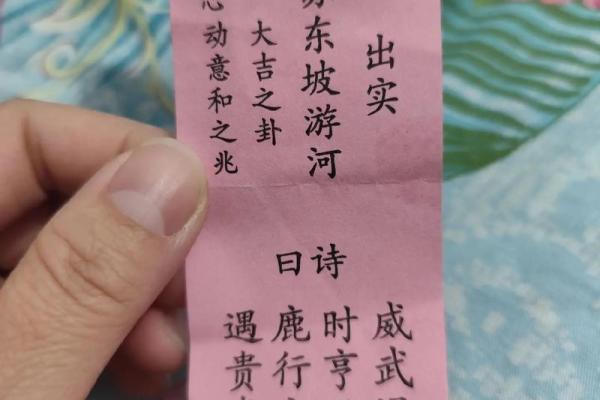 出实
苏东坡游河
大吉之卦
动意和之兆
诗曰
威武
时亨
鹿行
遇贵